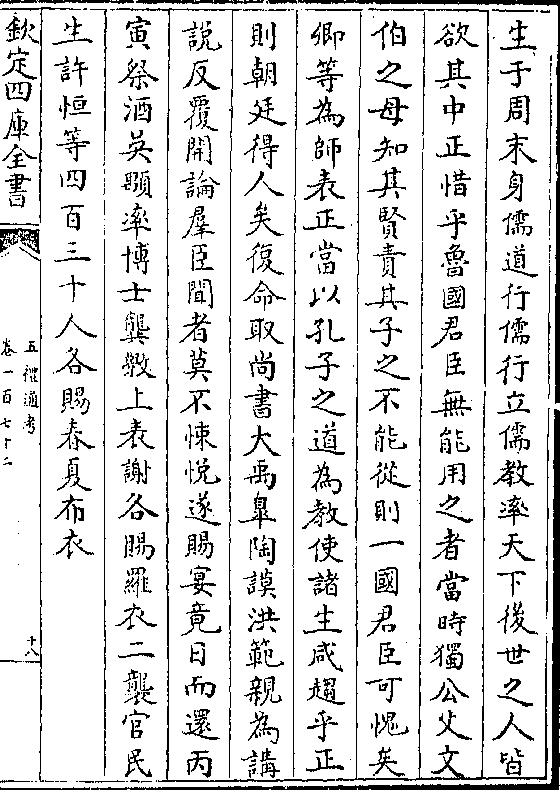 生于周末身儒道行儒行立儒教率天下後世之人皆
欲其中正惜乎魯國君臣無能用之者當時獨公父文
伯之母知其賢責其子之不能從則一國君臣可愧矣
卿等為師表正當以孔子之道為教使諸生咸趨乎正
則朝廷得人矣復命取尚書大禹臯陶謨洪範親為講
說反覆開論羣臣聞者莫不悚悦遂賜宴竟日而還丙
寅祭酒吳顒率博士龔斆上表謝各賜羅衣二襲官民
生許恒等四百三十人各賜春夏布衣
欽定四庫全書
五禮通考
卷一百七十二
十八